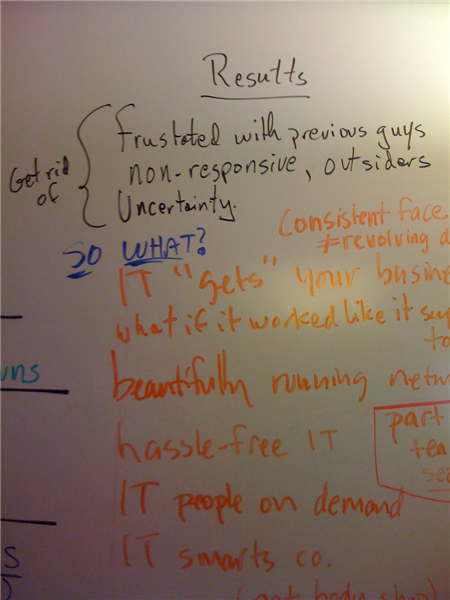 Results
Get rid
of
frustated with previous guys
non-responsive, outsiders
Uncertainty.
Consistent face.
≠revolving d
SO WHAT?
IT "gets" your busine
what if it worked like it sup
to
uns
beautifully running netw
part
tea
hassle-free IT
IT people on demand
IT smarts co.
S